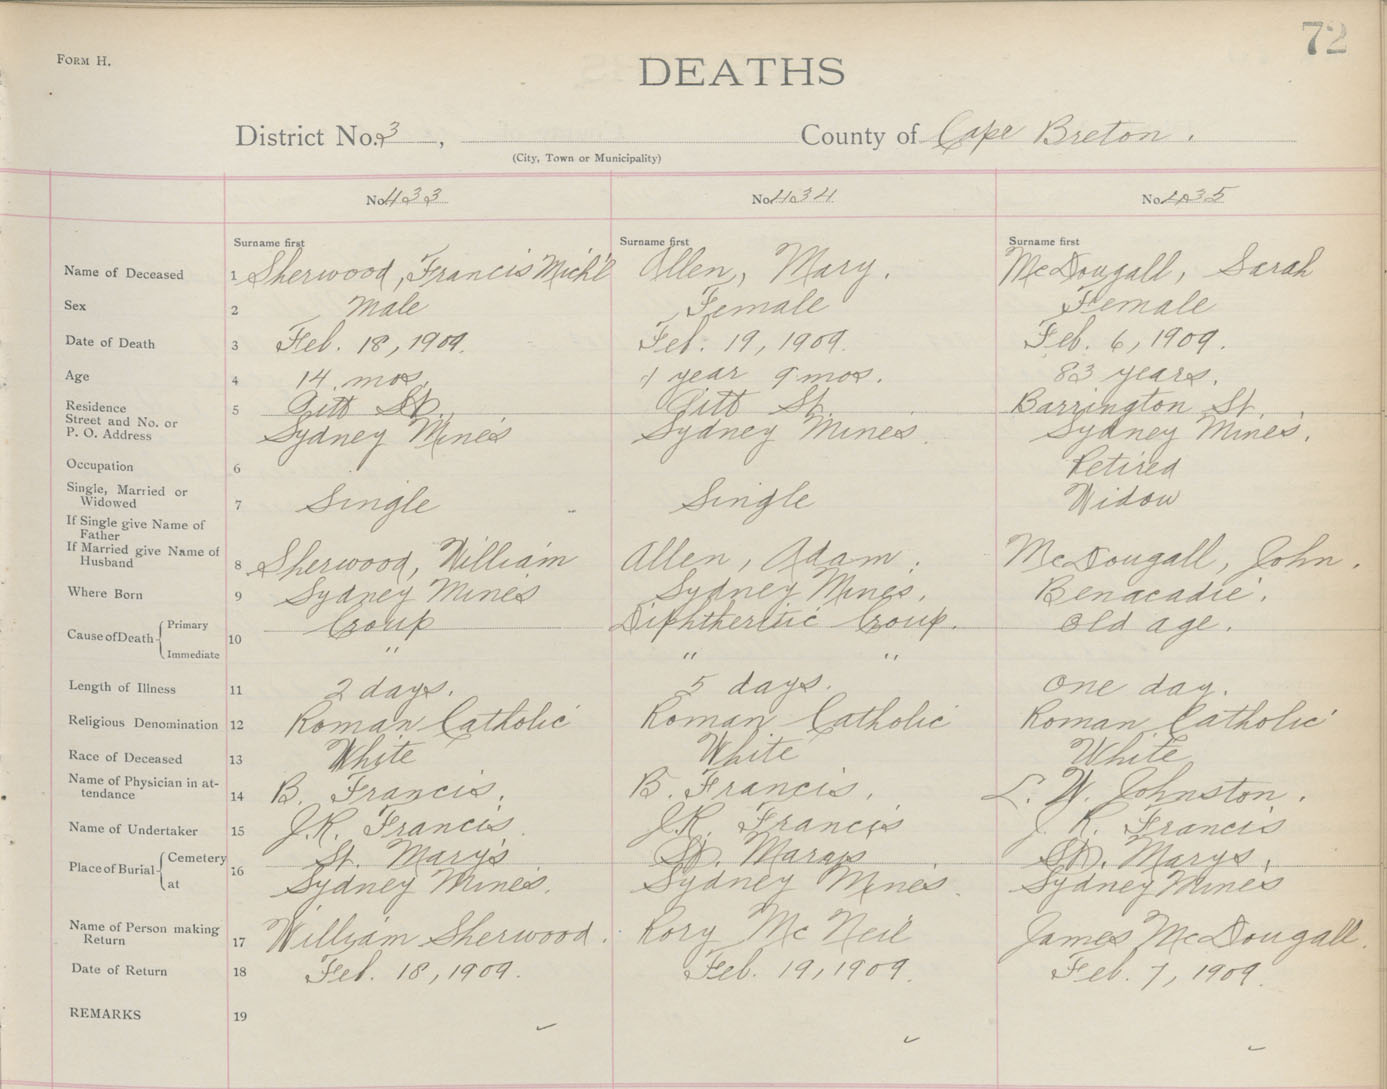 72
FORM H.
DEATHS
District No. 3, County of Cape Breton.
(City, Town or Municipality)
No. 433 No. 434 No. 435
Surname first Surname first Surname first
Name of Deceased 1 Sherwood, Francis Mich'l Allen, Mary. McDougall, Sarah
Sex 2 Male Female Female
Date of Death 3 Feb. 18, 1909. Feb. 19, 1909. Feb. 6, 1909.
Age 4 14 mos. 1 year 9 mos. 83 years.
Residence 5 Pitt St. Pitt St. Barrington St.
Street and No. or
P. O. Address Sydney Mines Sydney Mines. Sydney Mines.
Occupation 6 Retired
Single, Married or
Widowed 7 Single Single Widow
If Single give Name of
Father
If Married give Name of
Husband 8 Sherwood, William Allen, Adam. McDougall, John.
Where Born 9 Sydney Mines Sydney Mines. Benacadie.
Cause of Death Primary 10 Croup Diphtheritic Croup. Old age.
Immediate " " "
Length of Illness 11 2 days. 5 days. One day.
Religious Denomination 12 Roman Catholic Roman Catholic Roman Catholic
Race of Deceased 13 White White White
Name of Physician in at-
tendance 14 B. Francis. B. Francis. L. W. Johnston.
Name of Undertaker 15 J.R. Francis. J.R. Francis J. R. Francis
Place of Burial Cemetery 16 St. Mary's St. Marys St. Marys.
at Sydney Mines. Sydney Mines. Sydney Mines
Name of Person making
Return 17 William Sherwood. Rory McNeil James McDougall.
Date of Return 18 Feb. 18, 1909. Feb. 19, 1909. Feb. 7, 1909.
REMARKS 19